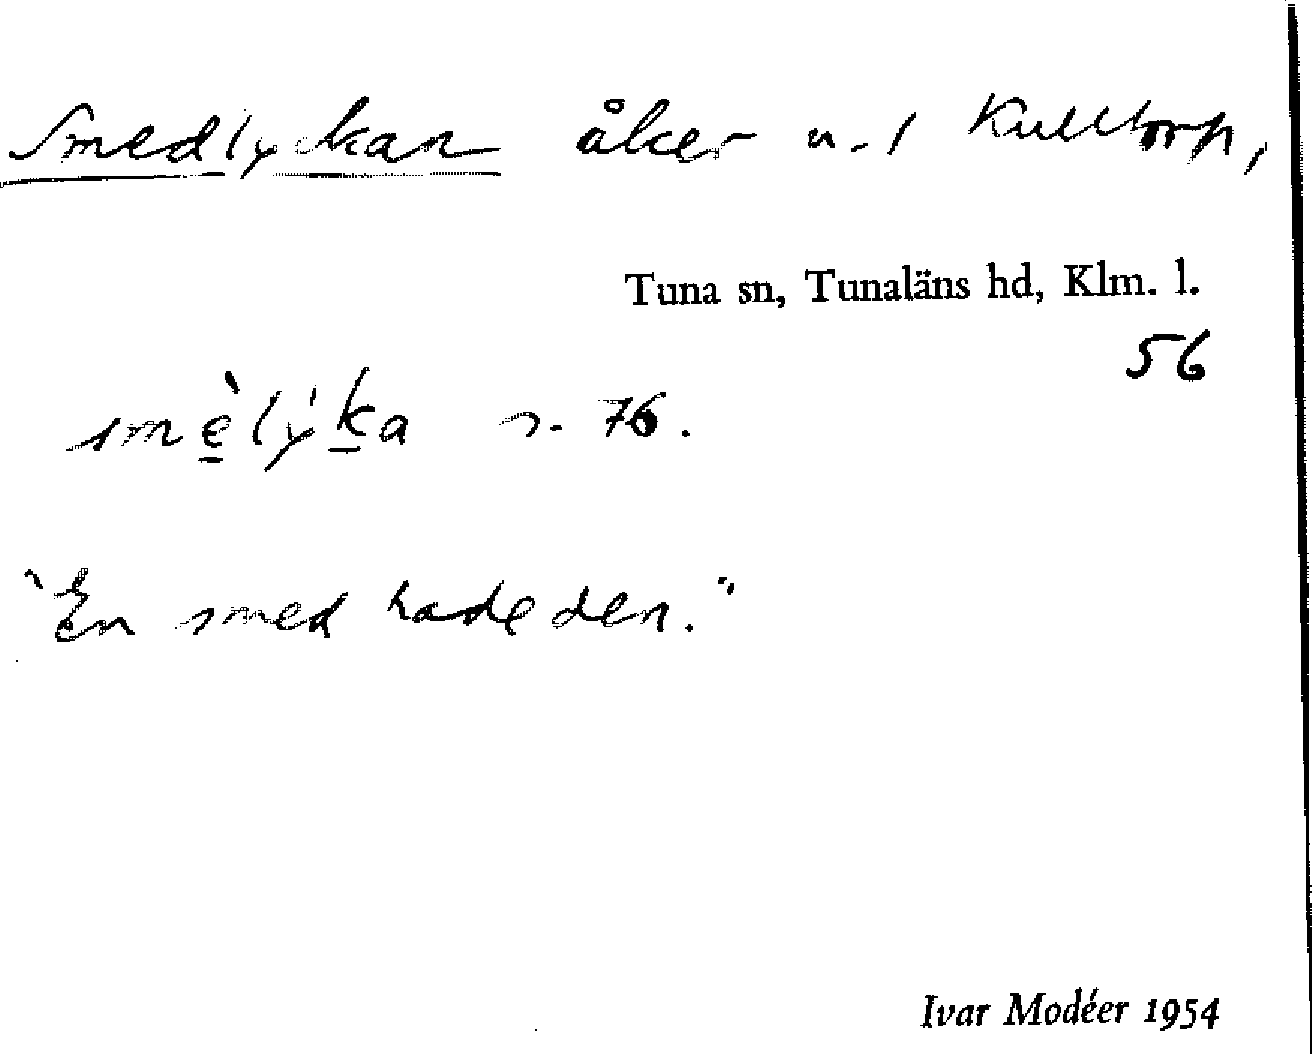 Smedlyckan åker u. / Kulltorp,
Tuna sn, Tunaläns hd, Klm. l.
56
smèlýka s. 76.
"En smed hade den."
Ivar Modéer 1954